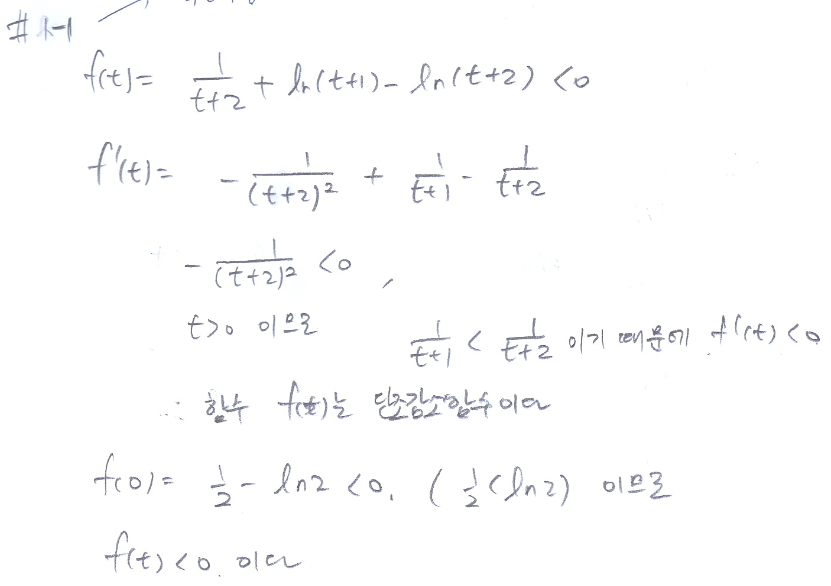 # 1-1
f(t) = 1/(t+2) + ln(t+1) - ln(t+2) < 0
f'(t) = - 1/(t+2)² + 1/(t+1) - 1/(t+2)
- 1/(t+2)² < 0 ,
t>0 이므로 1/(t+1) < 1/(t+2) 이기 때문에 f'(t) < 0
∴ 함수 f(t)는 단조감소함수이다
f(0) = 1/2 - ln2 < 0. ( 1/2 < ln2 ) 이므로
f(t) < 0 이다